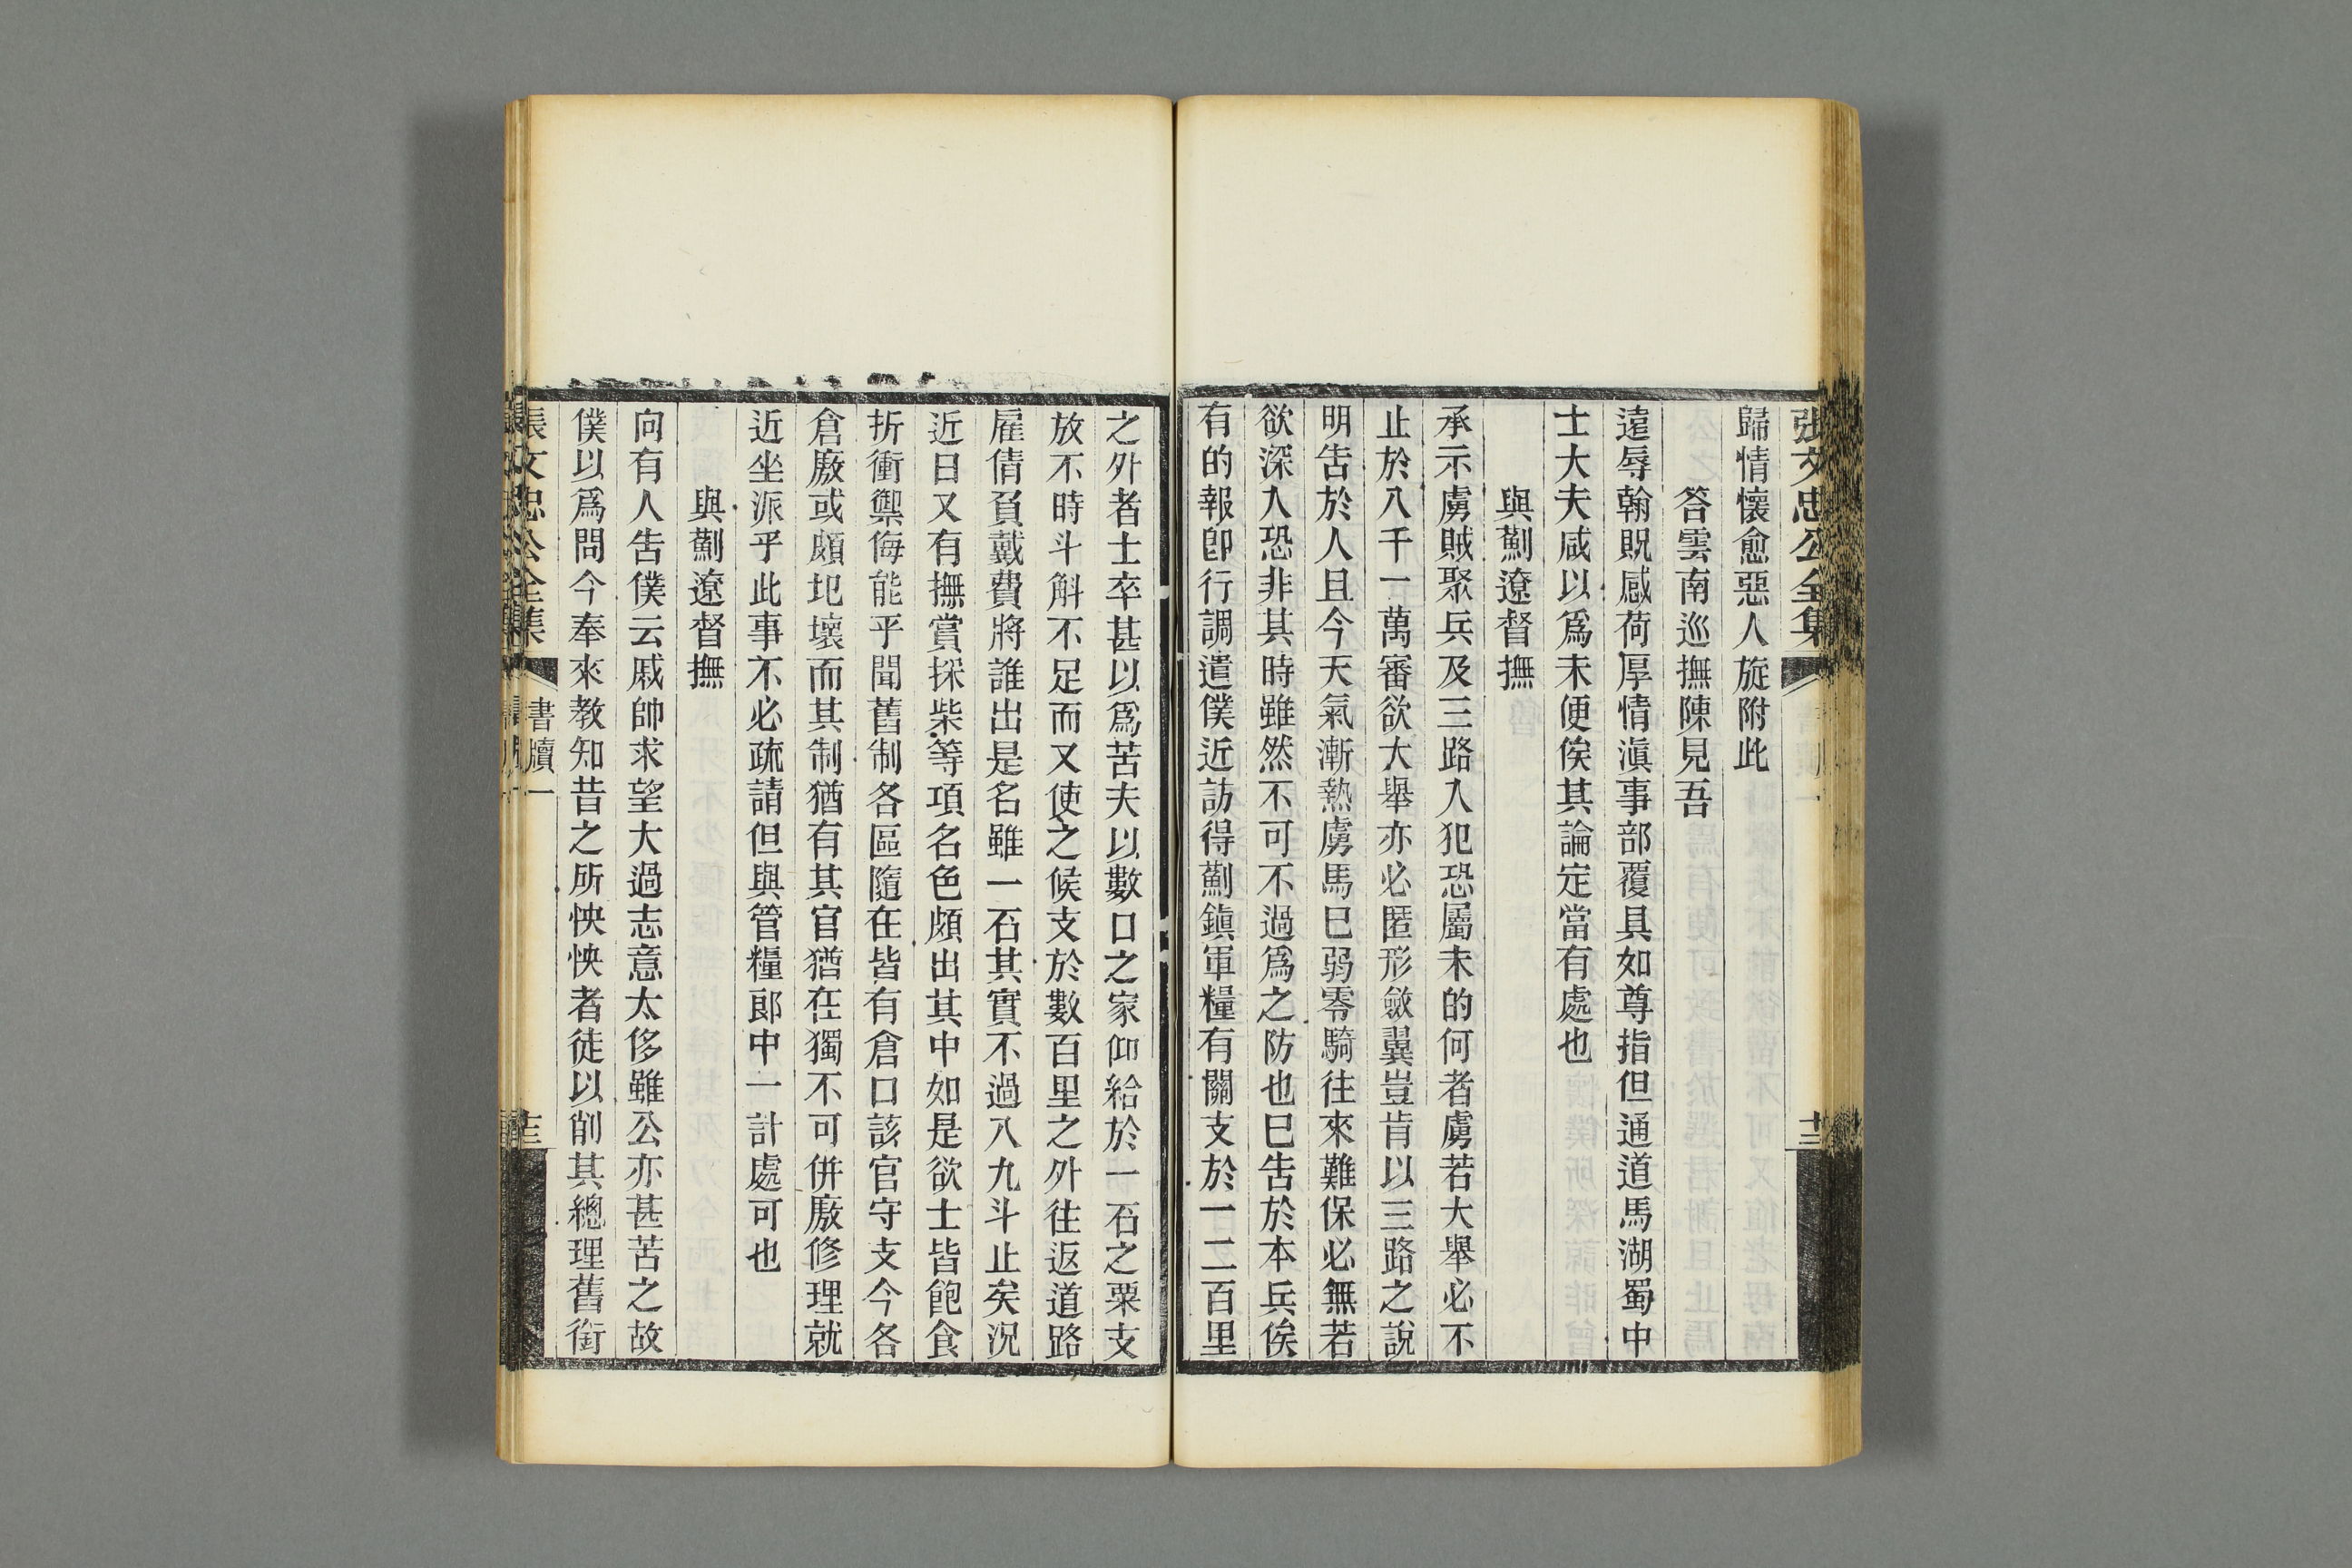 張文忠公全集
十二
歸情懷愈惡人旋附此
答雲南巡撫陳見吾
遠辱翰貺感荷厚情滇事部覆具如尊指但通道馬湖蜀中
士大夫咸以爲未便俟其論定當有處也
與薊遼督撫
承示虜賊聚兵及三路入犯恐屬未的何者虜若大舉必不
止於八千一萬審欲大舉亦必匿形斂翼豈肯以三路之說
明告於人且今天氣漸熱虜馬已弱零騎往來難保必無若
欲深入恐非其時雖然不可不過爲之防也已告於本兵俟
有的報卽行調遣僕近訪得薊鎭軍糧有關支於一二百里
之外者士卒甚以爲苦夫以數口之家仰給於一石之粟支
放不時斗斛不足而又使之候支於數百里之外往返道路
雇倩負戴費將誰出是名雖一石其實不過八九斗止矣況
近日又有撫賞採柴等項名色頗出其中如是欲士皆飽食
折衝禦侮能乎聞舊制各區隨在皆有倉口該官守支今各
倉廒或頗圯壞而其制猶有其官猶在獨不可併廒修理就
近坐派乎此事不必疏請但與管糧郎中一計處可也
與薊遼督撫
向有人告僕云戚帥求望大過志意太侈雖公亦甚苦之故
僕以爲問今奉來教知昔之所怏怏者徒以削其總理舊銜
張文忠公全集
書牘一
十三